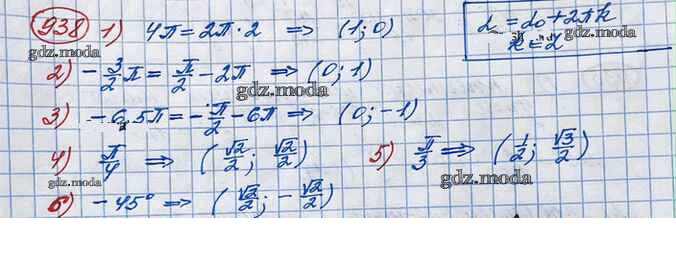 938 1) 4π = 2π·2 ⇒ (1; 0)
α = α₀ + 2πk
k ∈ Z
gdz.moda
2) -3/2 π = π/2 - 2π ⇒ (0; 1)
gdz.moda
3) -6,5π = -π/2 - 6π ⇒ (0; -1)
gdz.moda
4) π/4 ⇒ (√2/2; √2/2) 5) π/3 ⇒ (1/2; √3/2)
gdz.moda gdz.moda
6) -45° ⇒ (√2/2; -√2/2)
gdz.moda